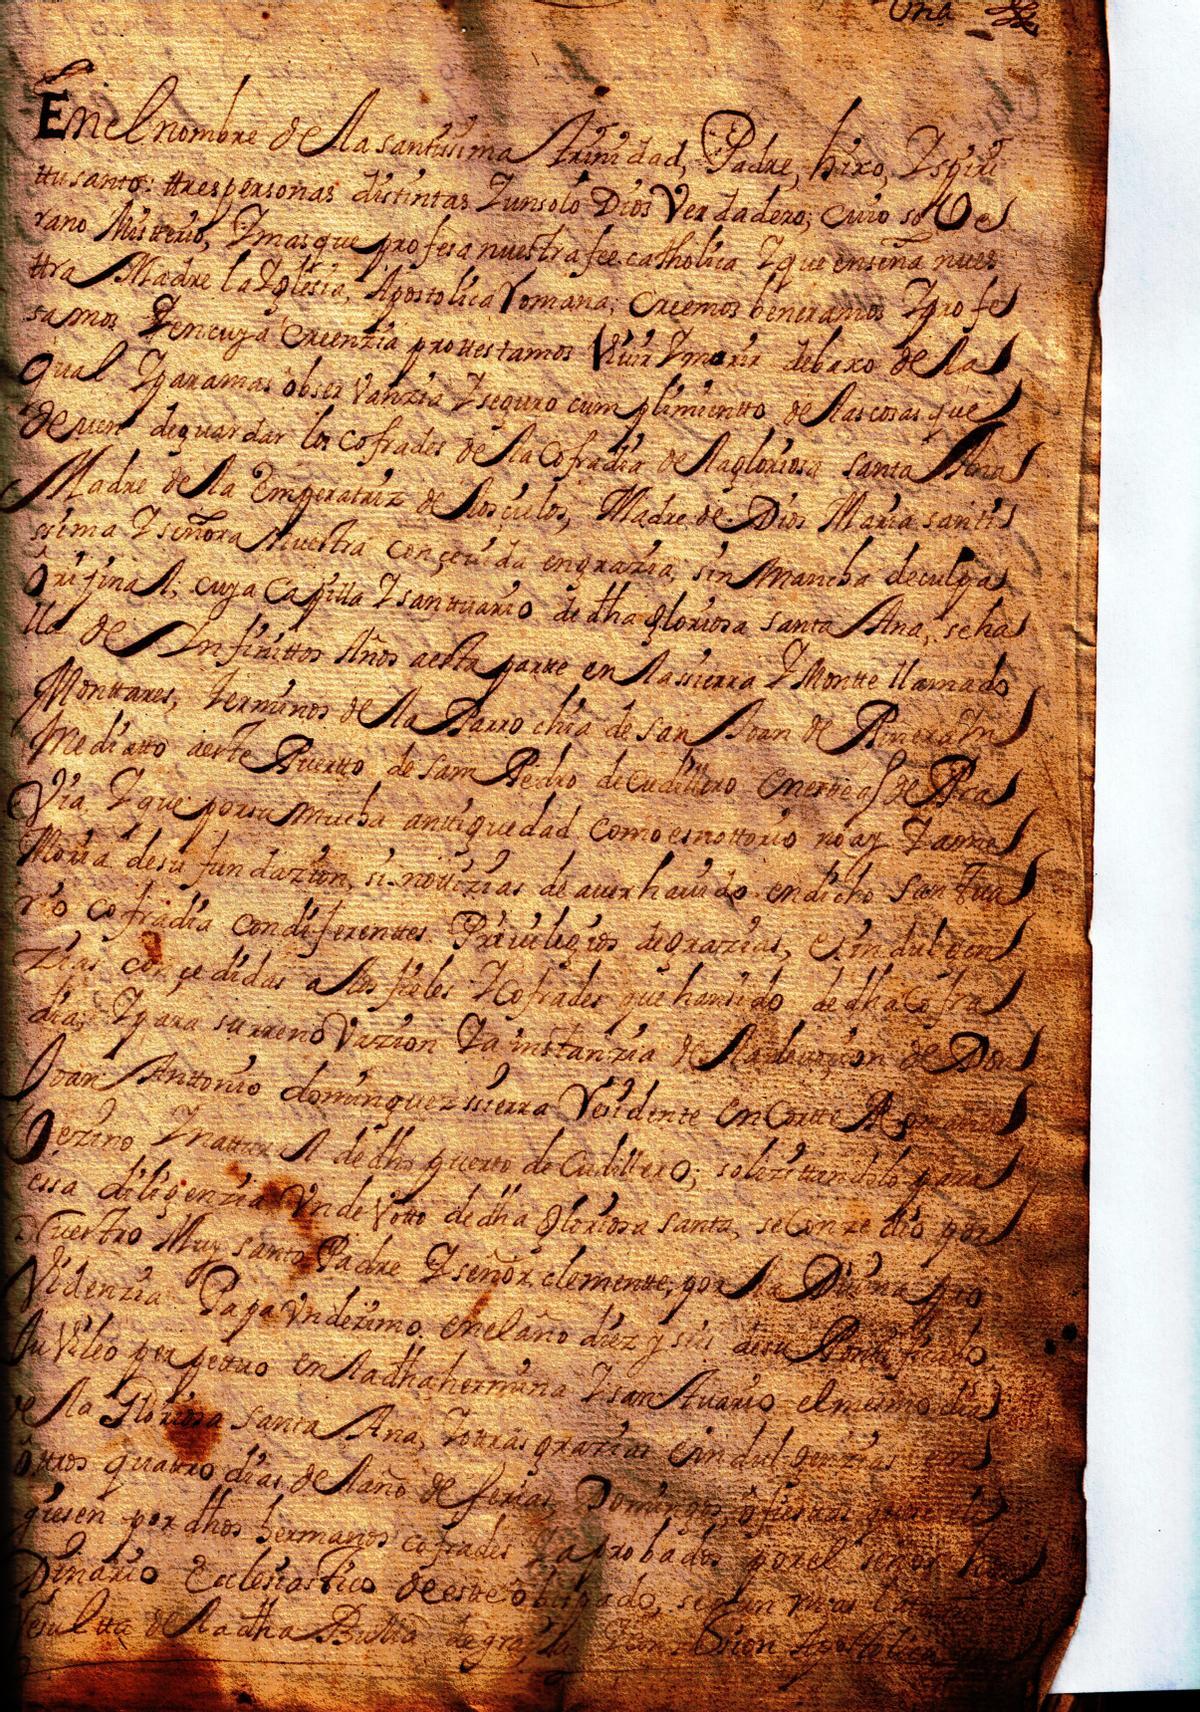 Una
En el nombre de la santissima trinidad, Padre, hixo, Y spiri
ttu santo: ttres personas distintas Y un solo Dios Verdadero; cuio sove
rano Mistterio, Y mas que profesa nuestra fee catholica Y que enseña nues
ttra Madre la Yglesia, Apostolica Romana; creemos beneramos Y profe
samos Y en cuya creenzia prottestamos Vivir Y morir debaxo de la
qual Y para mas observanzia Y seguro cumplimientto de las cosas que
deven de guardar los cofrades de la Cofradia de la gloriosa santa Ana
Madre de la Emperatriz de los cielos, Madre de Dios Maria santis
ssima Y señora nuestra conçevida en grazia, sin mancha de culpa
orijinal; cuya capilla Y santtuario de dha gloriosa santa Ana, se ha
lla de Infinittos Años a esta partte en la sierra Y Montte llamado
Monttares, terminos de la Parrochia de san Joan de Piñera Yn
mediatto a este Puertto de sam Pedro de Cudillero
Via, Y que por su mucha antiguedad como es nottorio no ay Y a me
moria de su fundazion, si nottizias de aver havido en dicho santua
rio cofradia con diferenttes Privilegios de grazias, e indulgen
zias conçedidas a los fieles Y Cofrades que han sido de dha Cofra
dia; Y para su renovazion Y a instanzia de la devoçion de Don
Joan Anttonio dominguez ssierra Residente en Cortte Romana
Vezino Y natural de dho puerto de Cudillero; solezittandolo para
essa diligenzia Un devoto de dha gloriosa santa, se conzedio por
Nuestro Muy santo Padre Y señor clementte, por la Divina pro
videnzia Papa Undezimo. en el año diez y seis de su Pontificado,
Ju Vileo perpettuo en la dha hermitta Y santuario el mesmo dia
de la Gloriosa santa Ana, Y ottras grazias e indulgenzias en
ottros quattro dias de el año de ferias, Domingos, o fiestas que
giesen por dhos hermanos cofrades Y aprobados por el señor hor
Dinario Ecclesiastico de este obispado, segun
resultta de la dha Bulla de Apostolica